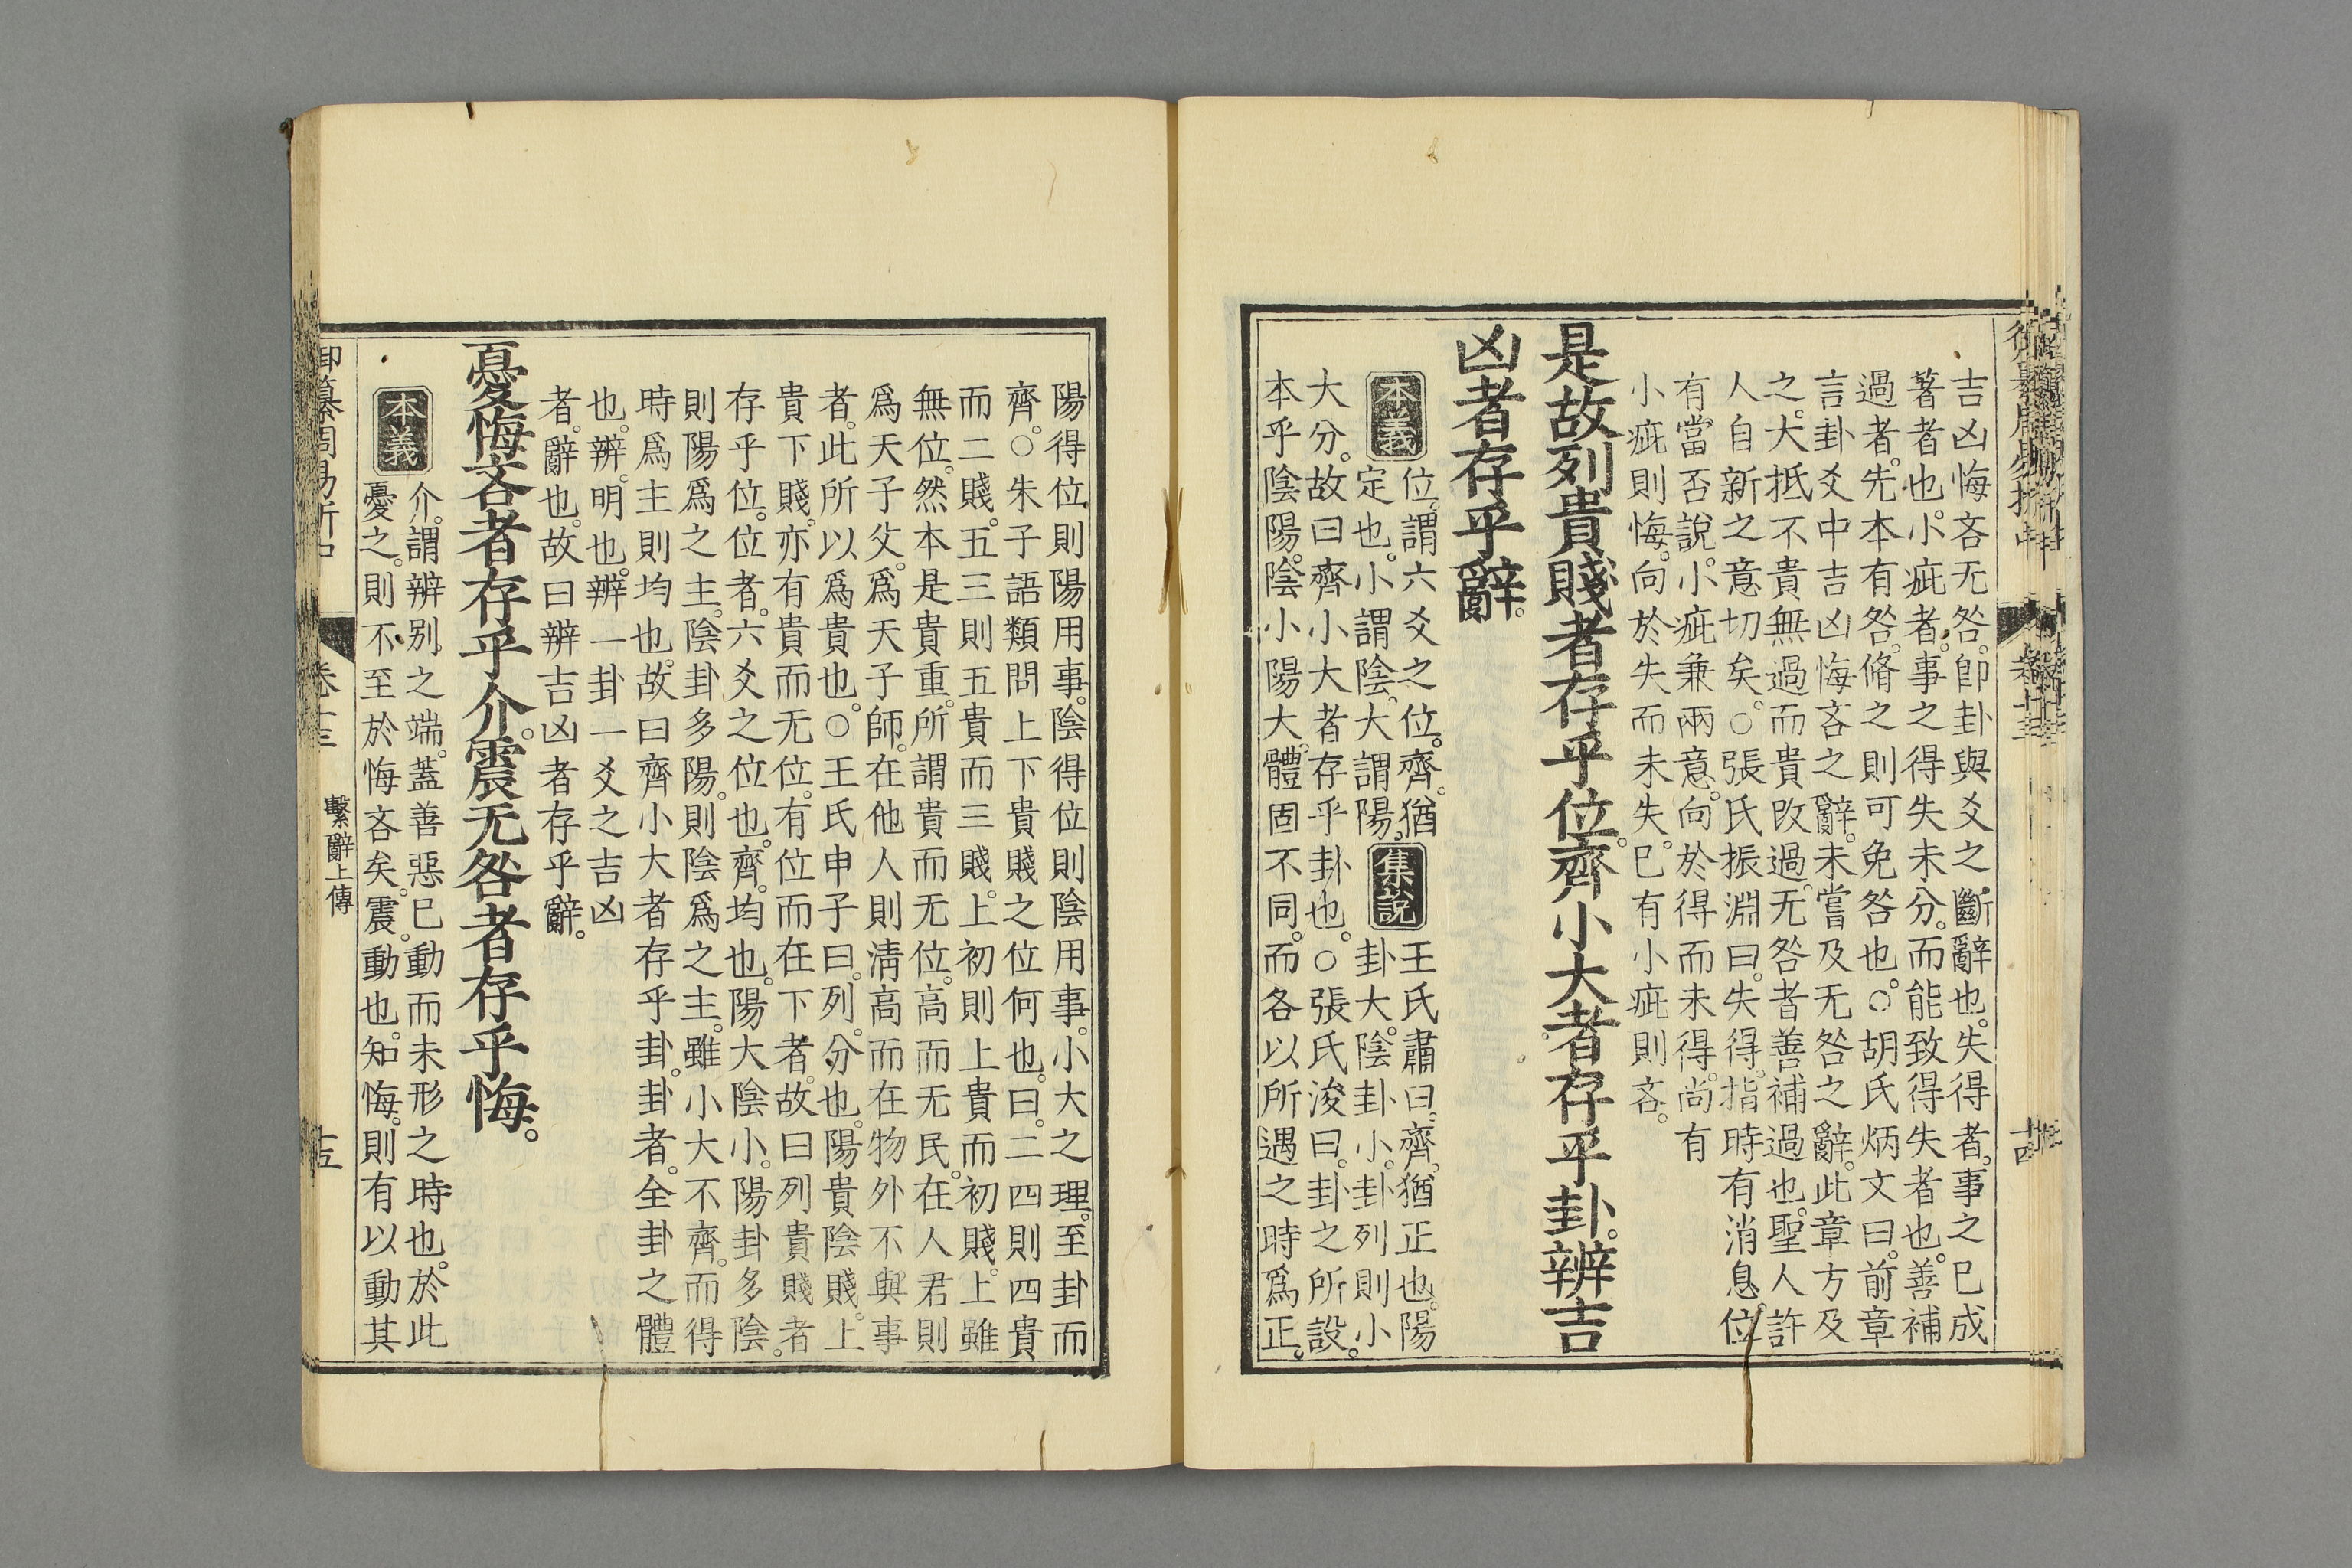 吉凶悔吝无咎。卽卦與爻之斷辭也。失得者。事之已成
著者也。小疵者。事之得失未分。而能致得失者也。善補
過者。先本有咎。脩之則可免咎也。○胡氏炳文曰。前章
言卦爻中吉凶悔吝之辭。未嘗及无咎之辭。此章方及
之。大抵不貴無過而貴改過。无咎者善補過也。聖人許
人自新之意切矣。○張氏振淵曰。失得。指時有消息。位
有當否說。小疵兼兩意。向於得而未得。尚有
小疵則悔。向於失而未失。已有小疵則吝。
是故列貴賤者存乎位。齊小大者存乎卦。辨吉
凶者存乎辭。
本義
位。謂六爻之位。齊。猶
定也。小謂陰。大謂陽。
集說
王氏肅曰。齊。猶正也。陽
卦大。陰卦小。卦列則小
大分。故曰齊小大者存乎卦也。○張氏浚曰。卦之所設。
本乎陰陽。陰小陽大。體固不同。而各以所遇之時爲正。
陽得位則陽用事。陰得位則陰用事。小大之理。至卦而
齊。○朱子語類問上下貴賤之位何也。曰。二四則四貴
而二賤。五三則五貴而三賤。上初則上貴而初賤。上雖
無位。然本是貴重。所謂貴而无位。高而无民。在人君則
爲天子父。爲天子師。在他人則淸高而在物外不與事
者。此所以爲貴也。○王氏申子曰。列。分也。陽貴陰賤。上
貴下賤。亦有貴而无位。有位而在下者。故曰列貴賤者
存乎位。位者。六爻之位也。齊。均也。陽大陰小。陽卦多陰。
則陽爲之主。陰卦多陽。則陰爲之主。雖小大不齊。而得
時爲主則均也。故曰齊小大者存乎卦。卦者。全卦之體
也。辨。明也。辨一卦一爻之吉凶
者。辭也。故曰辨吉凶者存乎辭。
憂悔吝者存乎介。震无咎者存乎悔。
本義
介。謂辨别之端。蓋善惡已動而未形之時也。於此
憂之。則不至於悔吝矣。震。動也。知悔。則有以動其
御纂周易折中
卷十三
繫辭上傳
十五